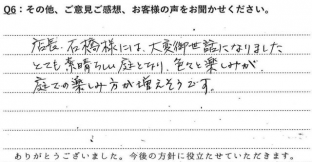 Q6：その他、ご意見ご感想、お客様の声をお聞かせください。
店長、石橋様には、大変御世話になりました
とても素晴らしい庭となり、色々と楽しみが
庭での楽しみ方が増えそうです。
ありがとうございました。今後の方針に役立たせていただきます。